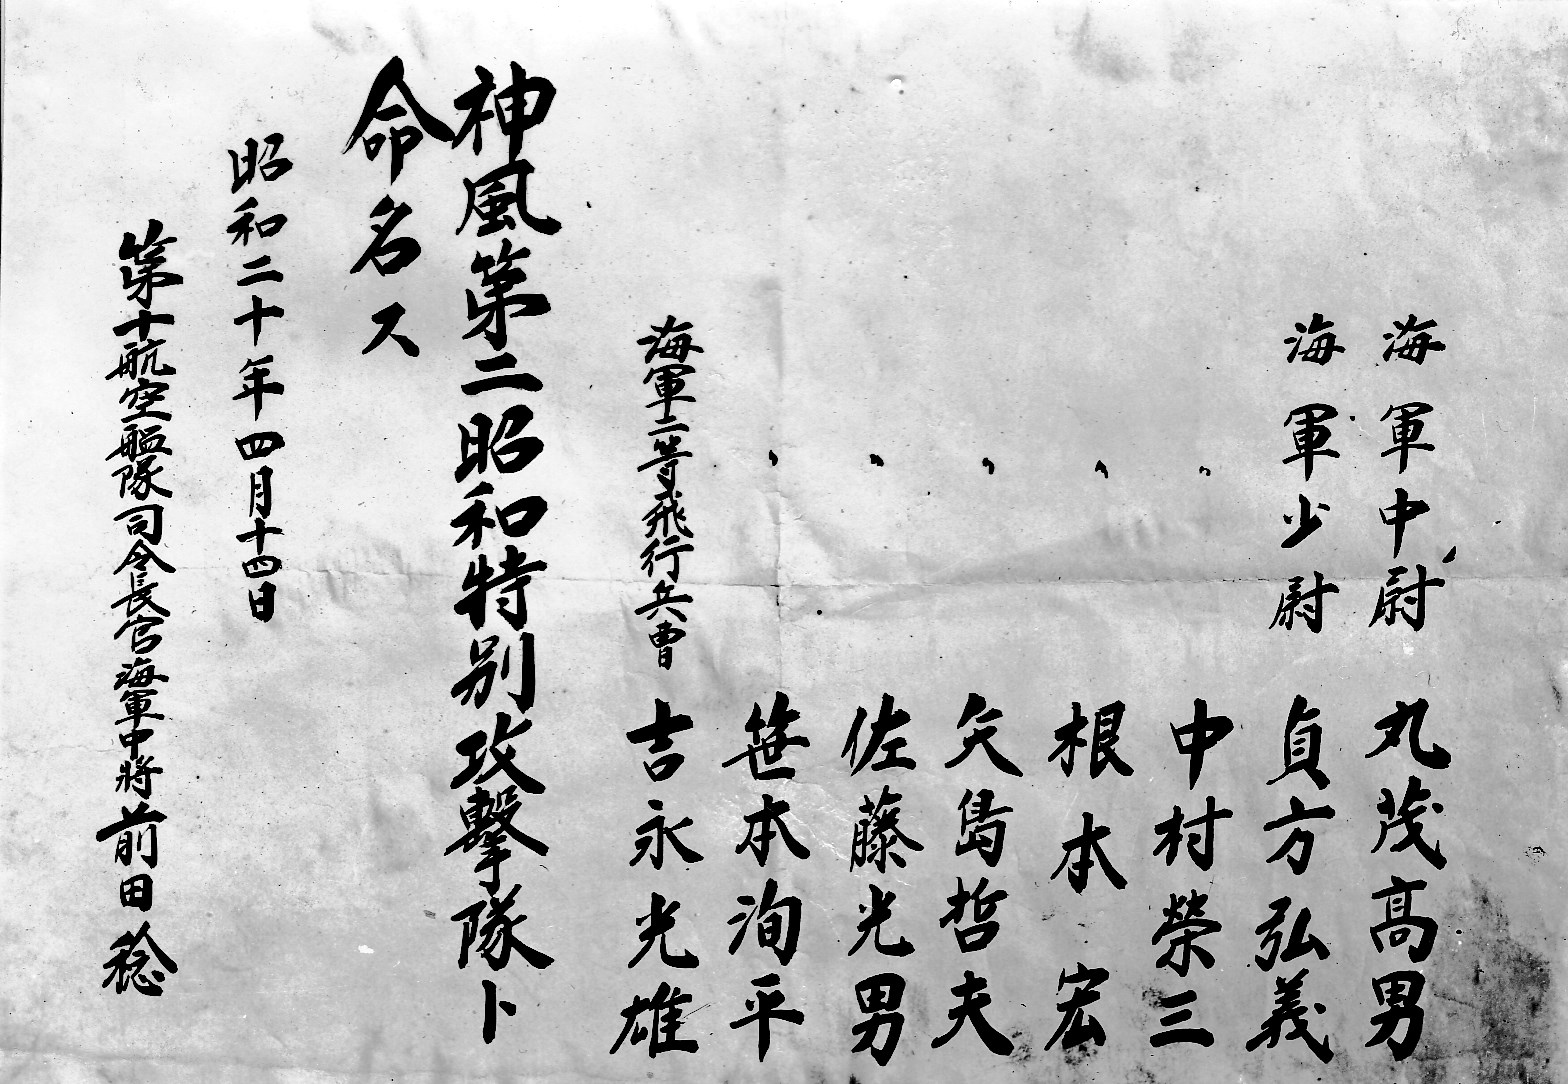 海軍中尉 丸茂高男
海軍少尉 貞方弘義
〃 中村榮三
〃 根本宏
〃 矢島哲夫
〃 佐藤光男
〃 笹本洵平
海軍二等飛行兵曹 吉永光雄
神風第二昭和特別攻撃隊ト
命名ス
昭和二十年四月十四日
第十航空艦隊司令長官海軍中将前田稔